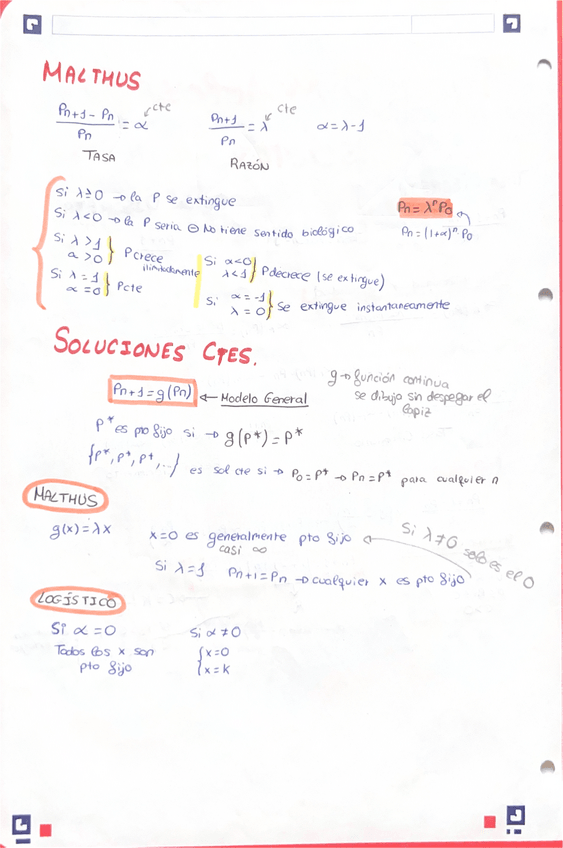 MALTHUS
Pn+1 - Pn / Pn = α ← cte
TASA
Pn+1 / Pn = λ ← cte
RAZÓN
α = λ - 1
Si λ ≥ 0 → la P se extingue
Si λ < 0 → la P seria ⊖ No tiene sentido biológico
Si λ > 1
α > 0 } P crece ilimitadamente
Si λ = 1
α = 0 } P cte
Si α < 0
λ < 1 } P decrece (se extingue)
Si α = -1
λ = 0 } Se extingue instantaneamente
Pn = λⁿ P0
Pn = (1+α)ⁿ P0
SOLUCIONES CTES.
Pn+1 = g(Pn) ← Modelo General
g → función continua
se dibujo sin despegar el
lapiz
P* es pto fijo si → g(P*) = P*
{P*, P*, P*, ...} es sol cte si → P0 = P* → Pn = P* para cualquier n
MALTHUS
g(x) = λx
x = 0 es generalmente pto fijo
casi ∞
Si λ ≠ 0 solo es el 0
Si λ = 1 Pn+1 = Pn → cualquier x es pto fijo
LOGÍSTICO
Si α = 0
Todos los x son
pto fijo
Si α ≠ 0
{ x = 0
x = k